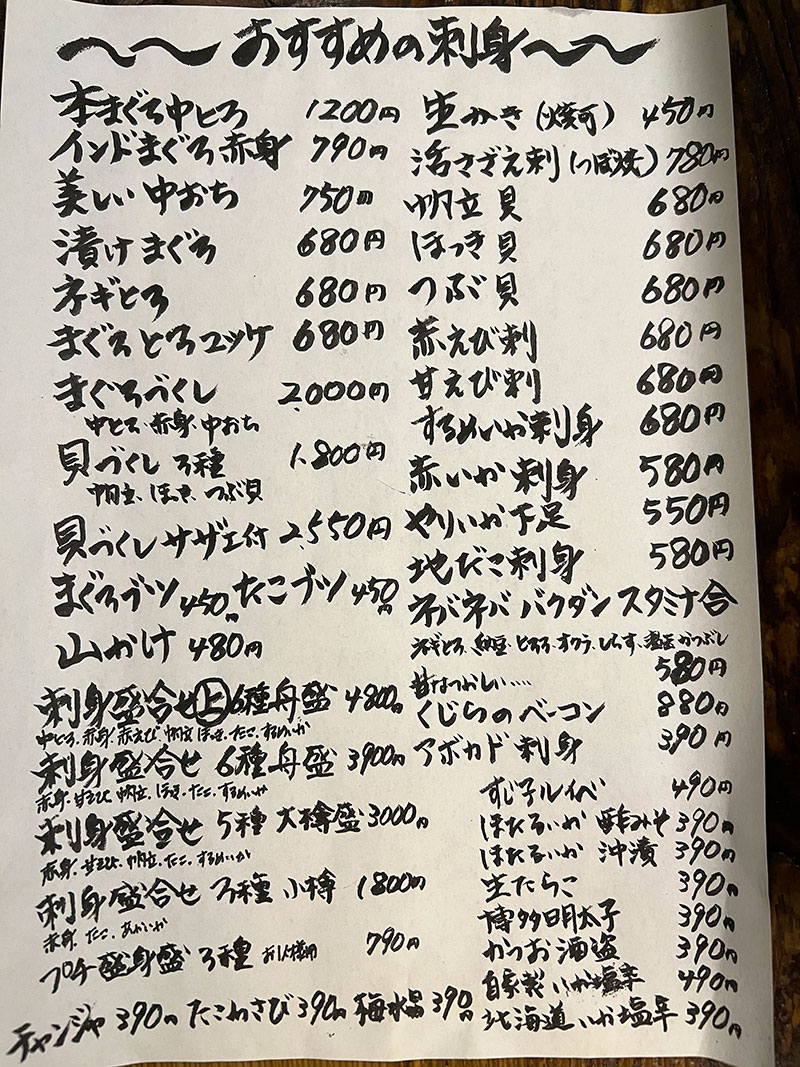 〜〜おすすめの刺身〜〜
本まぐろ中とろ 1200円
インドまぐろ赤身 790円
美しい中おち 750円
漬けまぐろ 680円
ネギとろ 680円
まぐろとろユッケ 680円
まぐろづくし 2,000円
中とろ、赤身、中おち
貝づくし 3種 1,800円
帆立、ほっき、つぶ貝
貝づくしサザエ付 2,550円
まぐろブツ 450円 たこブツ 450円
山かけ 480円
刺身盛合せ㊤6種舟盛 4800円
中とろ、赤身、赤えび、帆立、ほっき、たこ、するめいか
刺身盛合せ 6種舟盛 3900円
赤身、甘えび、帆立、ほっき、たこ、するめいか
刺身盛合せ 5種 大樽盛 3000円
赤身、甘えび、帆立、たこ、するめいか
刺身盛合せ 3種 小樽 1800円
赤身、たこ、あかいか
プチ盛身盛 3種 お1人様用 790円
チャンジャ 390円 たこわさび 390円 梅水晶 390円
生かき(焼可) 450円
活さざえ刺(つぼ焼) 780円
帆立貝 680円
ほっき貝 680円
つぶ貝 680円
赤えび刺 680円
甘えび刺 680円
するめいか刺身 680円
赤いか刺身 580円
やりいか下足 550円
地だこ刺身 580円
ネバネババクダンスタミナ合
ネギとろ、納豆、とろろ、オクラ、しらす、かつぶし
580円
昔なつかしい……
くじらのベーコン 880円
アボカド刺身 390円
すじ子ルイベ 490円
ほたるいか 酢みそ 390円
ほたるいか 沖漬 390円
生たらこ 390円
博多明太子 390円
かつお酒盗 390円
自家製いか塩辛 490円
北海道いか塩辛 390円